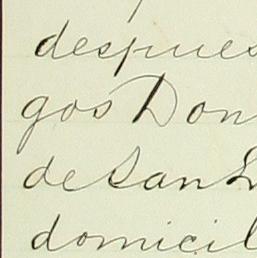 despues
gos Don
de San L
domicil